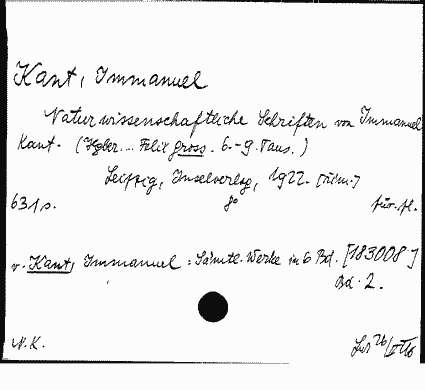 Kant, Immanuel
Naturwissenschaftliche Schriften von Immanuel
Kant. (Hgber... Felix gross. 6.-9. Taus.)
Leipzig, Inselverlag, 1922.
631 s. 8°
v. Kant, Immanuel: Sämtl. Werke in 6 Bd. [183008]
Bd. 2.
N.K.